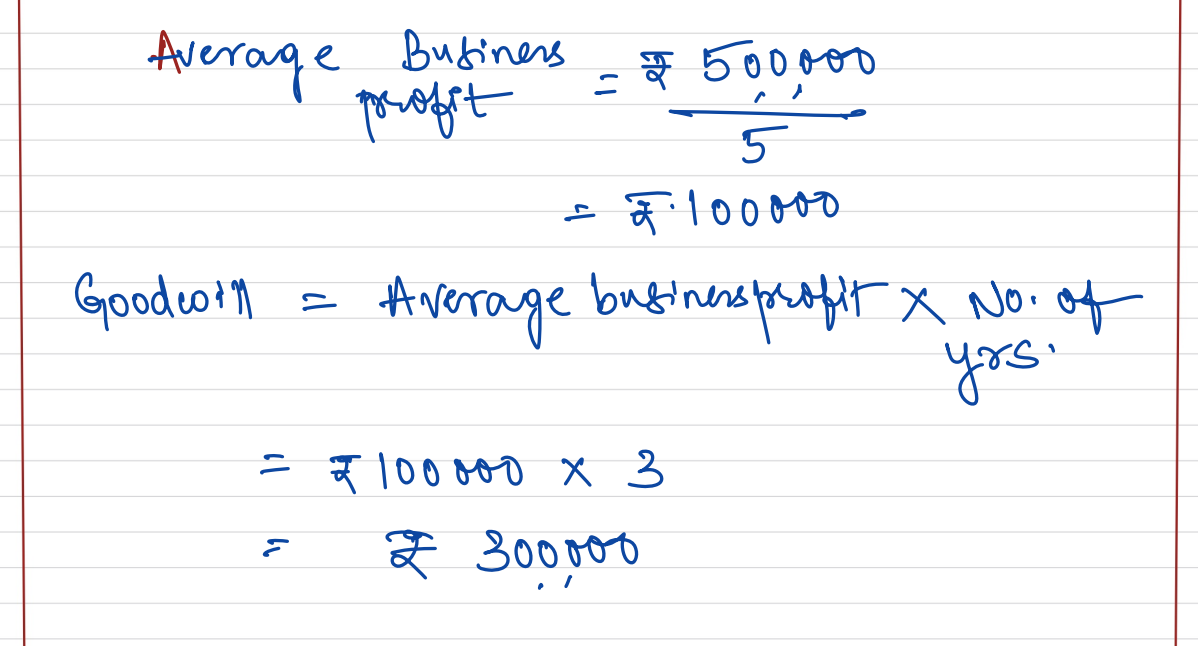 Average Business profit = ₹ 500,000
5
= ₹ 100000
Goodwill = Average business profit × No. of
yrs.
= ₹ 100000 × 3
= ₹ 300,000